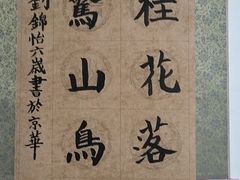 桂花落
驚山鳥
劉錦怡六歲書於京華